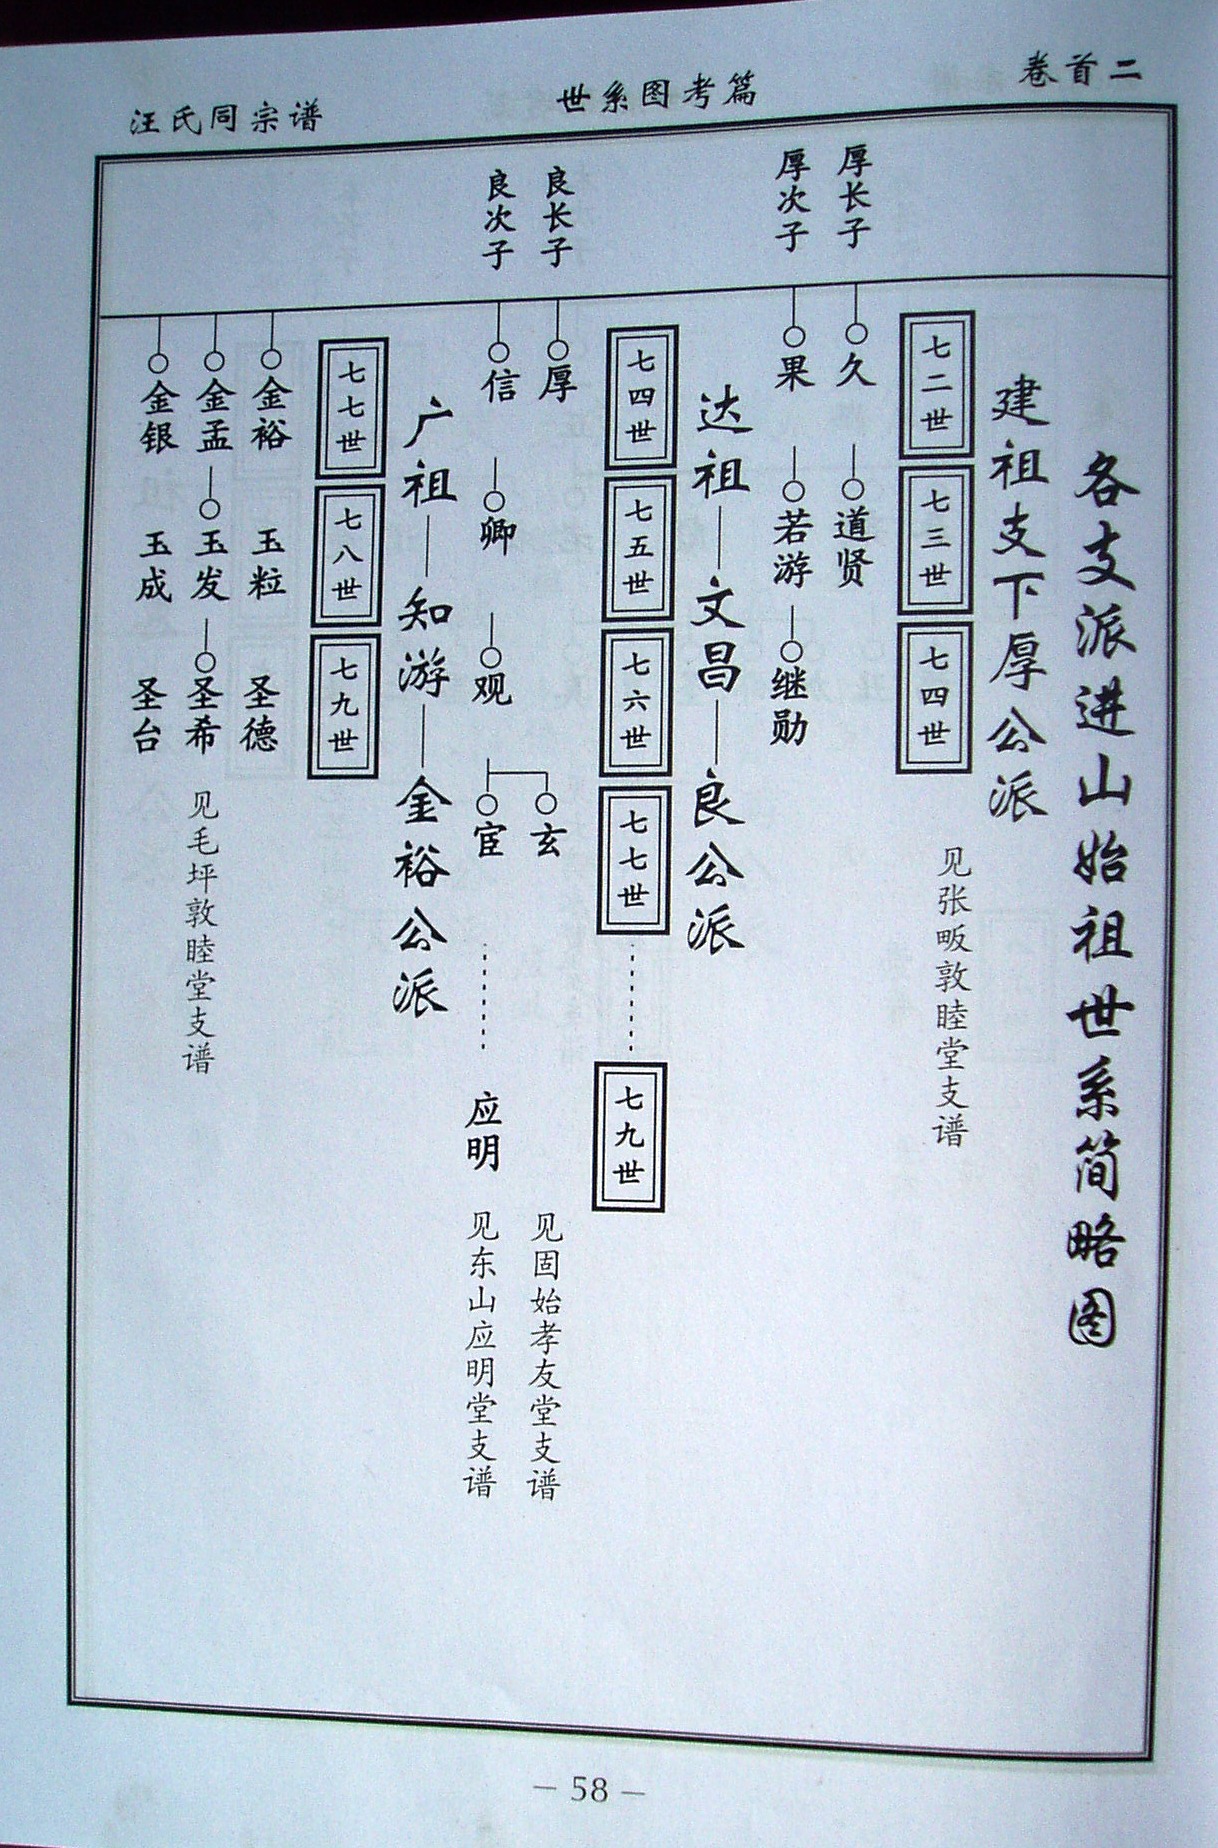 卷首二
世系图考篇
汪氏同宗谱
各支派进山始祖世系简略图
建祖支下厚公派
七二世
七三世
七四世
见张畈敦睦堂支谱
厚长子
久
道贤
厚次子
果
若游
继勋
达祖—文昌—良公派
七四世
七五世
七六世
七七世
七九世
良长子
厚
玄
见固始孝友堂支谱
良次子
信
卿
观
宦
应明
见东山应明堂支谱
广祖—知游—金裕公派
七七世
七八世
七九世
金裕
玉粒
圣德
金孟
玉发
圣希
见毛坪敦睦堂支谱
金银
玉成
圣台
— 58 —